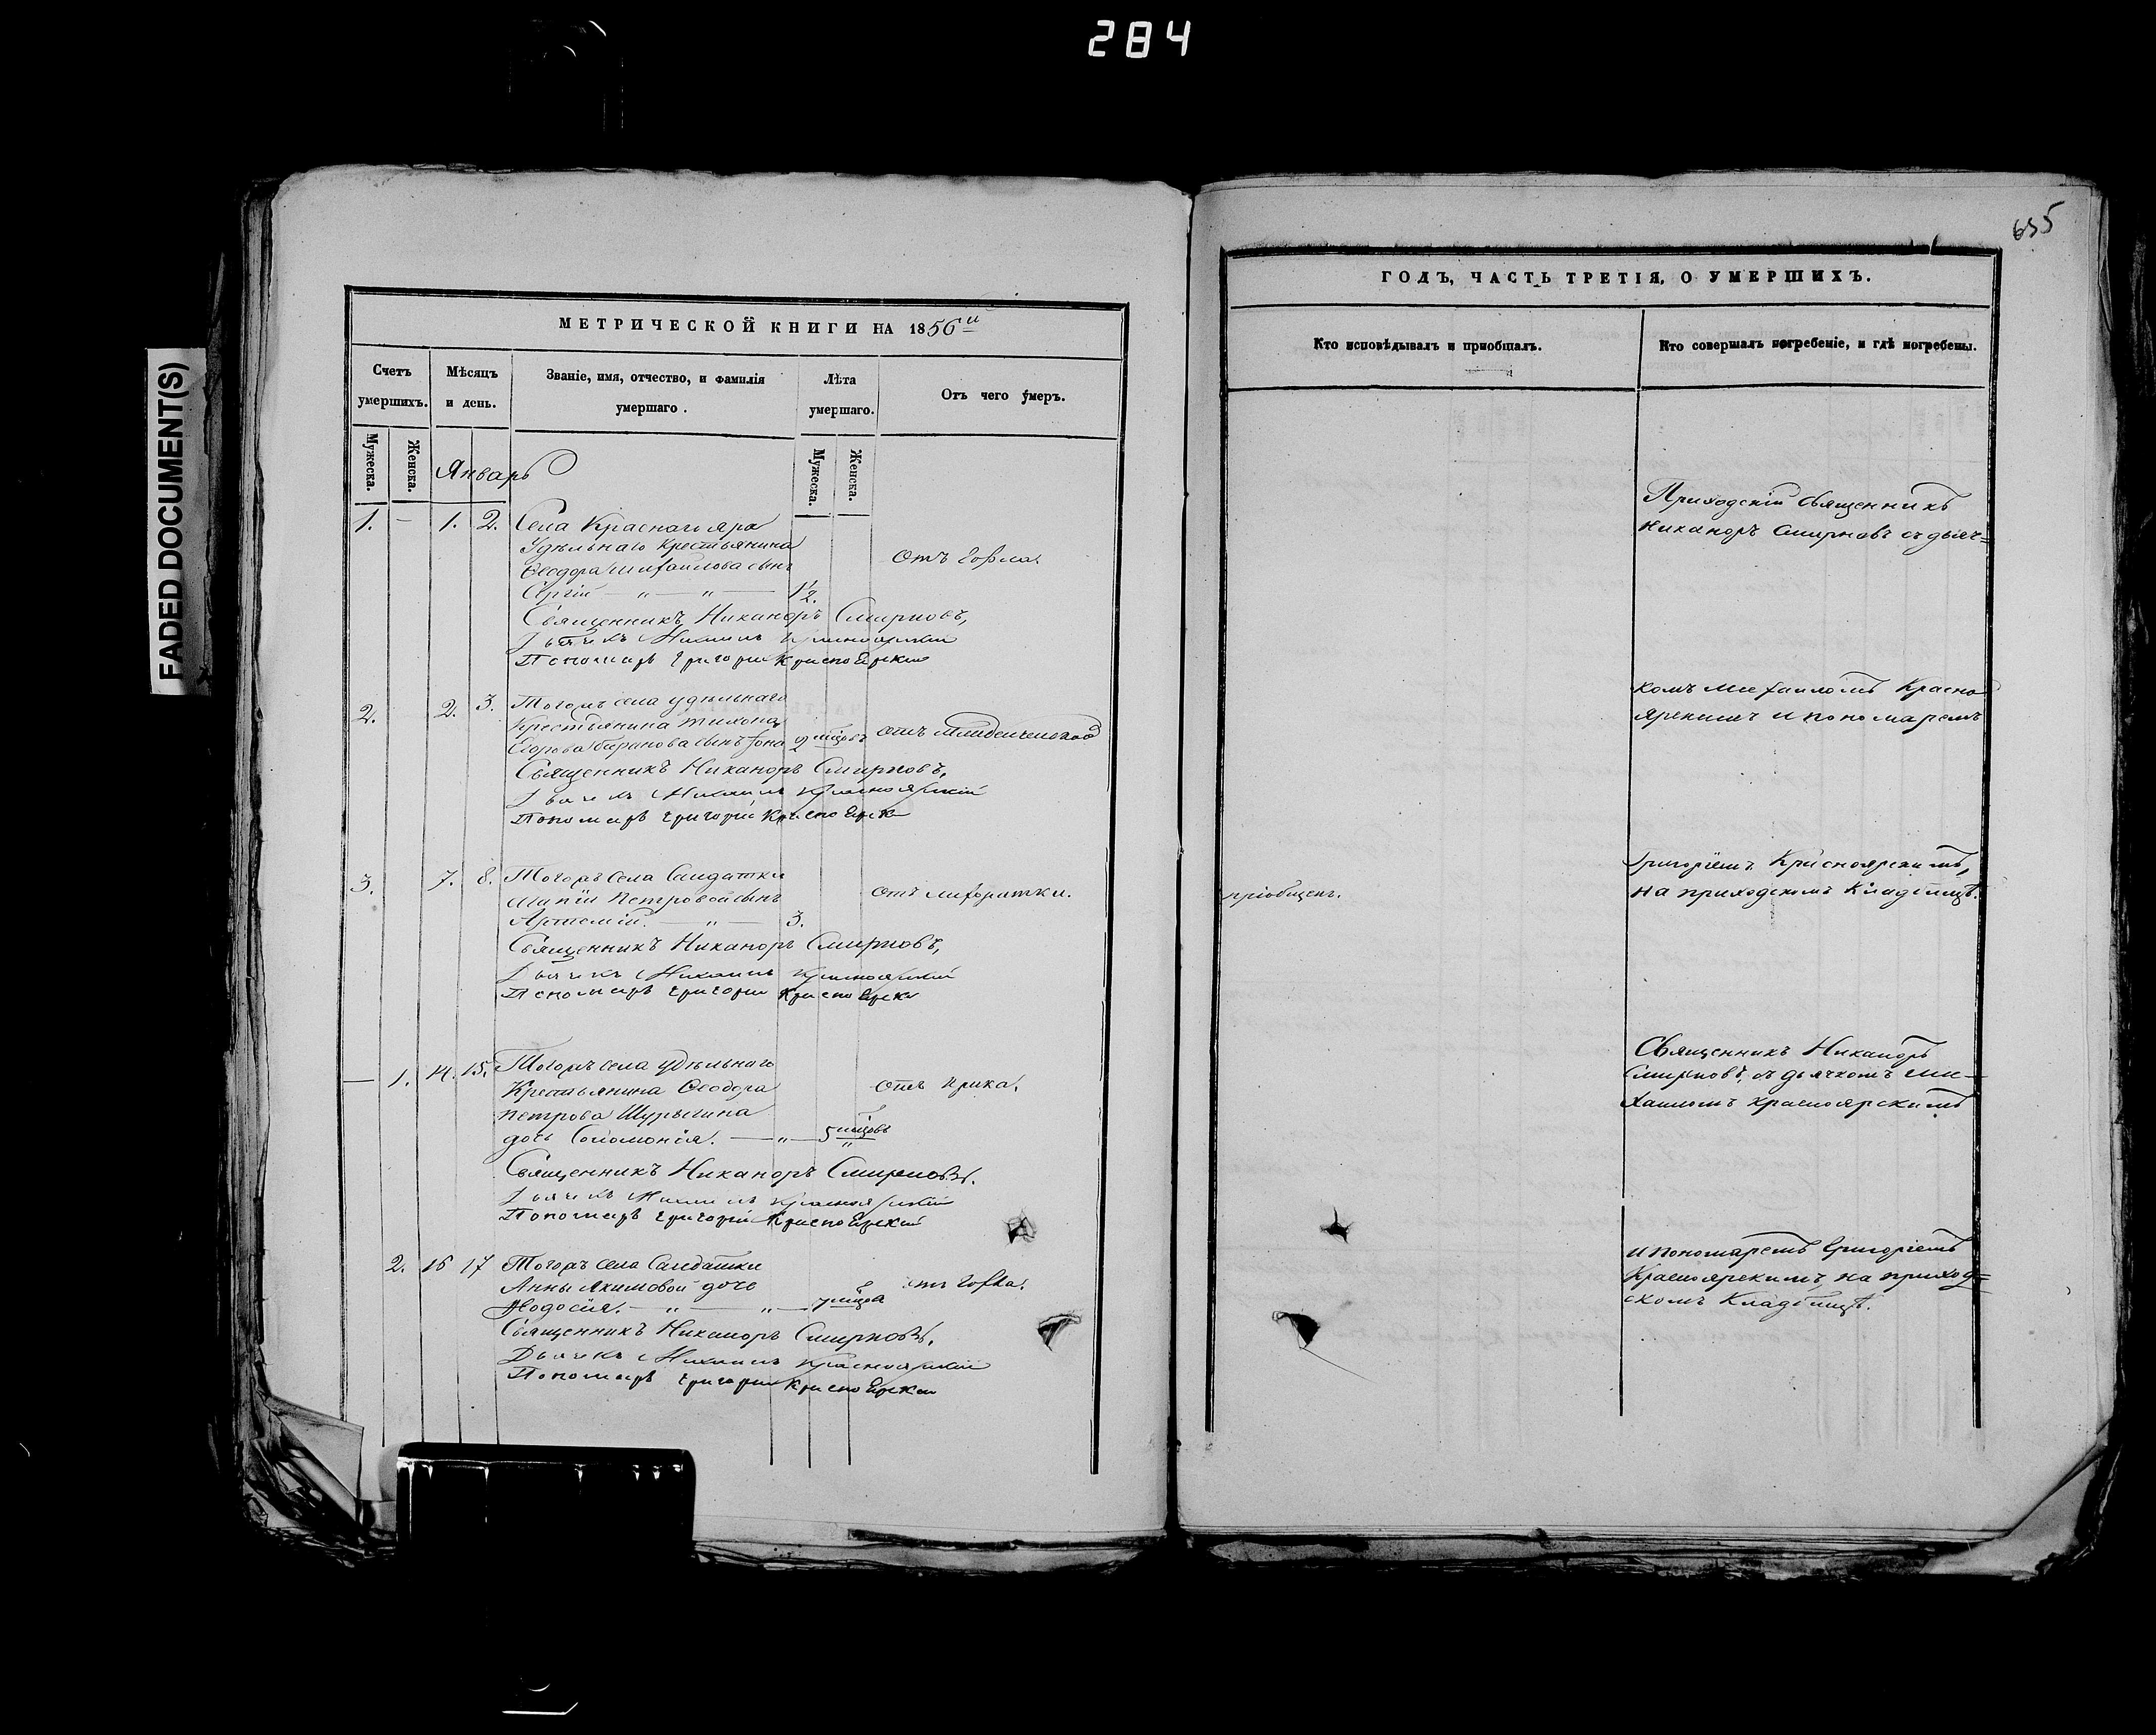 284
FADED DOCUMENT(S)
655
МЕТРИЧЕСКОЙ КНИГИ НА 1856й
Счетъ умершихъ.
Мѣсяцъ и день.
Званіе, имя, отчество, и фамилія умершаго.
Лѣта умершаго.
Отъ чего умеръ.
Мужеска.
Женска.
Январь
Мужеска.
Женска.
1. — 1. 2. Села Краснаго яра
Удѣльнаго Крестьянина
Ѳеодора Михайлова сынъ
Сергій — „ — „ — 1½.
отъ
Священникъ Никаноръ Смирновъ,
Дьячекъ Михаилъ Красноярскій
Пономарь Григорій Красноярскій
2. 2. 3. Тогожъ села удѣльнаго
Крестьянина Тихона
Егорова Баранова сынъ 2 мѣсцовъ
отъ Младенческой
Священникъ Никаноръ Смирновъ,
Дьячекъ Михаилъ Красноярскій
Пономарь Григорій Красноярскій
3. 7. 8. Тогожъ села Солдатки
Петровой сынъ
Артемій. — „ — 3.
отъ лихорадки.
Священникъ Никаноръ Смирновъ,
Дьячекъ Михаилъ Красноярскій
Пономарь Григорій Красноярскій
— 1. 14. 15. Тогожъ села удѣльнаго
Крестьянина Ѳеодора
Петрова Шурыгина
дочь Соломонія. — „ — 5 мѣсцовъ
отъ крика.
Священникъ Никаноръ Смирновъ.
Дьячекъ Михаилъ Красноярскій
Пономарь Григорій Красноярскій
2. 16 17 Тогожъ села Солдатки
Анны Якимовой дочь
Ѳодосія. — „ — „ — мѣсца
отъ
Священникъ Никаноръ Смирновъ.
Дьячекъ Михаилъ Красноярскій
Пономарь Григорій Красноярскій
ГОДЪ, ЧАСТЬ ТРЕТІЯ, О УМЕРШИХЪ.
Кто исповѣдывалъ и пріобщалъ.
Кто совершалъ погребеніе, и гдѣ погребены.
Приходскій Священникъ
Никаноръ Смирновъ съ дьяч=
комъ Михаиломъ Красно
ярскимъ и пономаремъ
Григоріемъ Красноярскимъ,
на приходскомъ Кладбищѣ.
пріобщенъ.
Священникъ Никаноръ
Смирновъ, съ дьячкомъ Ми—
хаиломъ Красноярскимъ
и пономаремъ Григоріемъ
Красноярскимъ, на приход=
скомъ Кладбищѣ.